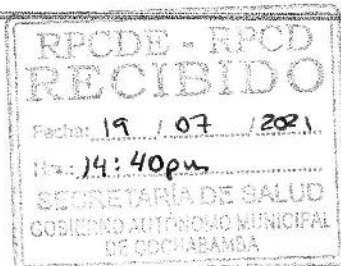 RPCDE - RPCD
RECIBIDO
Fecha: 19 / 07 / 2021
Hrs.: 14:40pm
SECRETARÍA DE SALUD
GOBIERNO AUTÓNOMO MUNICIPAL
DE COCHABAMBA